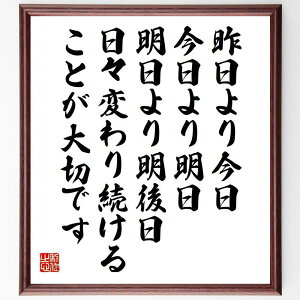 昨日より今日
今日より明日
明日より明後日
日々変わり続ける
ことが大切です